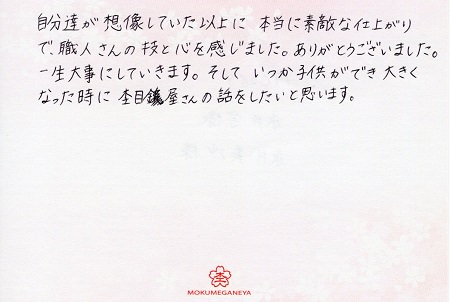 自分達が想像していた以上に 本当に素敵な仕上がり
で、職人さんの技と心を感じました。ありがとうございました。
一生大事にしていきます。そして いつか子供ができ大きく
なった時に 杢目鏡屋さんの話をしたいと思います。
MOKUMEGANEYA